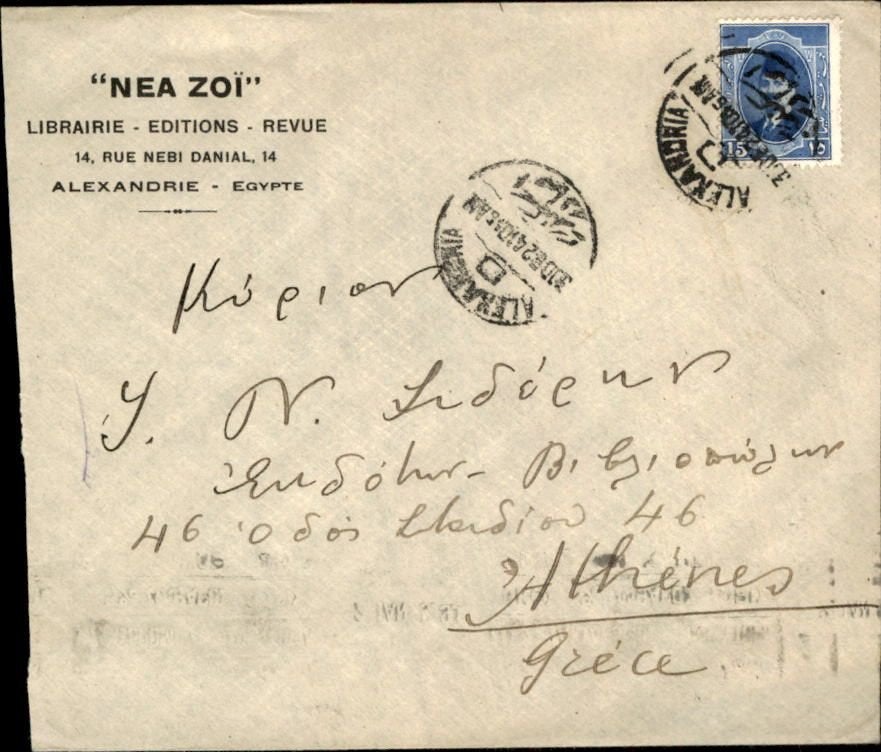 "NEA ZOÏ"
LIBRAIRIE - EDITIONS - REVUE
14, RUE NEBI DANIAL, 14
ALEXANDRIE - EGYPTE
15 ١٥
ALEXANDRIA
D
ALEXANDRIA
D
30 DE 24 10 15 AM
Κύριον
Ι. Ν. Σιδέρην
Ἐκδότην - Βιβλιοπώλην
46 Ὁδός Σταδίου 46
Athénes
Gréce